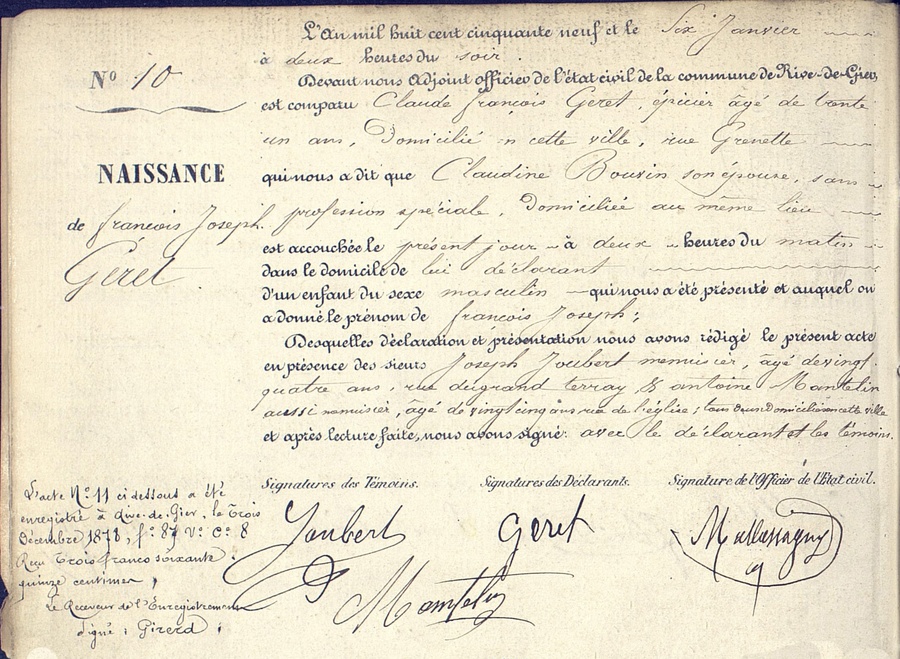 L'An mil huit cent cinquante neuf et le Six Janvier
à deux heures du soir.
Nº 10
Devant nous Adjoint officier de l'état civil de la commune de Rive-de-Gier,
est comparu Claude françois Geret, épicier âgé de trente
un ans, Domicilié en cette ville, rue Grenette
NAISSANCE
qui nous a dit que Claudine Bouvin son épouse, sans
de françois Joseph
profession spéciale, Domiciliée au même lieu
Geret
est accouchée le présent jour à deux heures du matin
dans le domicile de lui déclarant
d'un enfant du sexe masculin qui nous a été présenté et auquel on
a donné le prénom de françois Joseph;
Desquelles déclaration et présentation nous avons rédigé le présent acte
en présence des sieurs Joseph Joubert menuisier, âgé de vingt
quatre ans, rue & antoine Mantelin
aussi menuisier, âgé de vingt cinq ans rue de l'église; tous deux Domiciliés en cette ville
et après lecture faite, nous avons signé avec le déclarant et les témoins.
Signatures des Témoins. Signatures des Déclarants. Signature de l'Officier de l'Etat civil.
Joubert Geret
Mantelin
L'acte Nº 11 ci dessous a été
enregistré à Rive-de-Gier, le Trois
Décembre 1878, fº 87 Vº Cº 8
Reçu Trois francs soixante
quinze centimes,
Le Receveur de l'Enregistrement
signé : Girerd